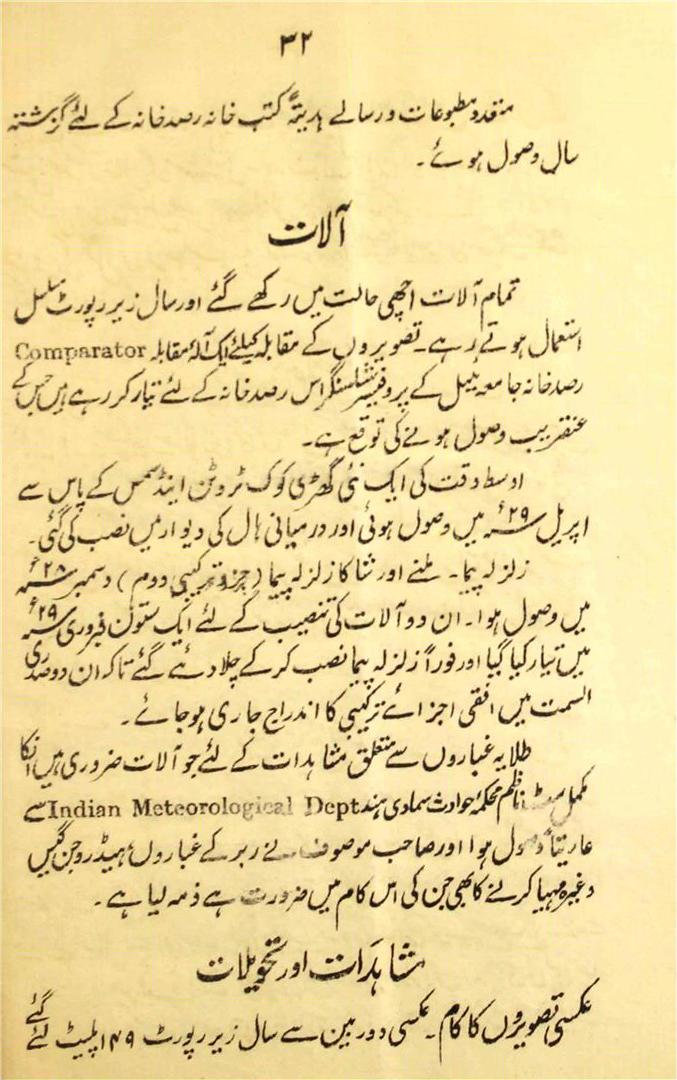 ۳۲
متعدد مطبوعات و رسالے ہدیتہً کتب خانہ رصد خانہ کے لئے گزشتہ
سال وصول ہوئے ۔
آلات
تمام آلات اچھی حالت میں رکھے گئے اور سال زیر رپورٹ مسلسل
استعمال ہوتے رہے ۔ تصویروں کے مقابلہ کیلئے ایک آلۂ مقابلہ Comparator
رصد خانہ جامعہ ییل کے پروفیسر شلسنگر اس رصد خانہ کے لئے تیار کر رہے ہیں جس کے
عنقریب وصول ہونے کی توقع ہے ۔
اوسط وقت کی ایک نئی گھڑی کوک ٹروٹن اینڈ سمس کے پاس سے
اپریل ۲۹ء میں وصول ہوئی اور درمیانی ہال کی دیوار میں نصب کی گئی ۔
زلزلہ پیما ۔ ملنے اور شا کا زلزلہ پیما (جزو ترکیبی دوم) دسمبر ۲۸ء
میں وصول ہوا ۔ ان دو آلات کی تنصیب کے لئے ایک ستون فبروری ۲۹ء
میں تیار کیا گیا اور فوراً زلزلہ پیما نصب کر کے چلا دئے گئے تاکہ ان دو صدری
السمت میں افقی اجزائے ترکیبی کا اندراج جاری ہو جائے ۔
طلایہ غباروں سے متعلق مشاہدات کے لئے جو آلات ضروری ہیں انکا
مکمل سٹ ناظم محکمۂ حوادث سماوی ہند Indian Meteorological Dept سے
عاریتاً وصول ہوا اور صاحب موصوف نے ربر کے غباروں ہیڈروجن گیس
وغیرہ مہیا کرنے کا بھی جن کی اس کام میں ضرورت ہے ذمہ لیا ہے ۔
مشاہدات اور تحویلات
عکسی تصویروں کا کام ۔ عکسی دوربین سے سال زیر رپورٹ ۱۴۹ پلیٹ لئے گئے